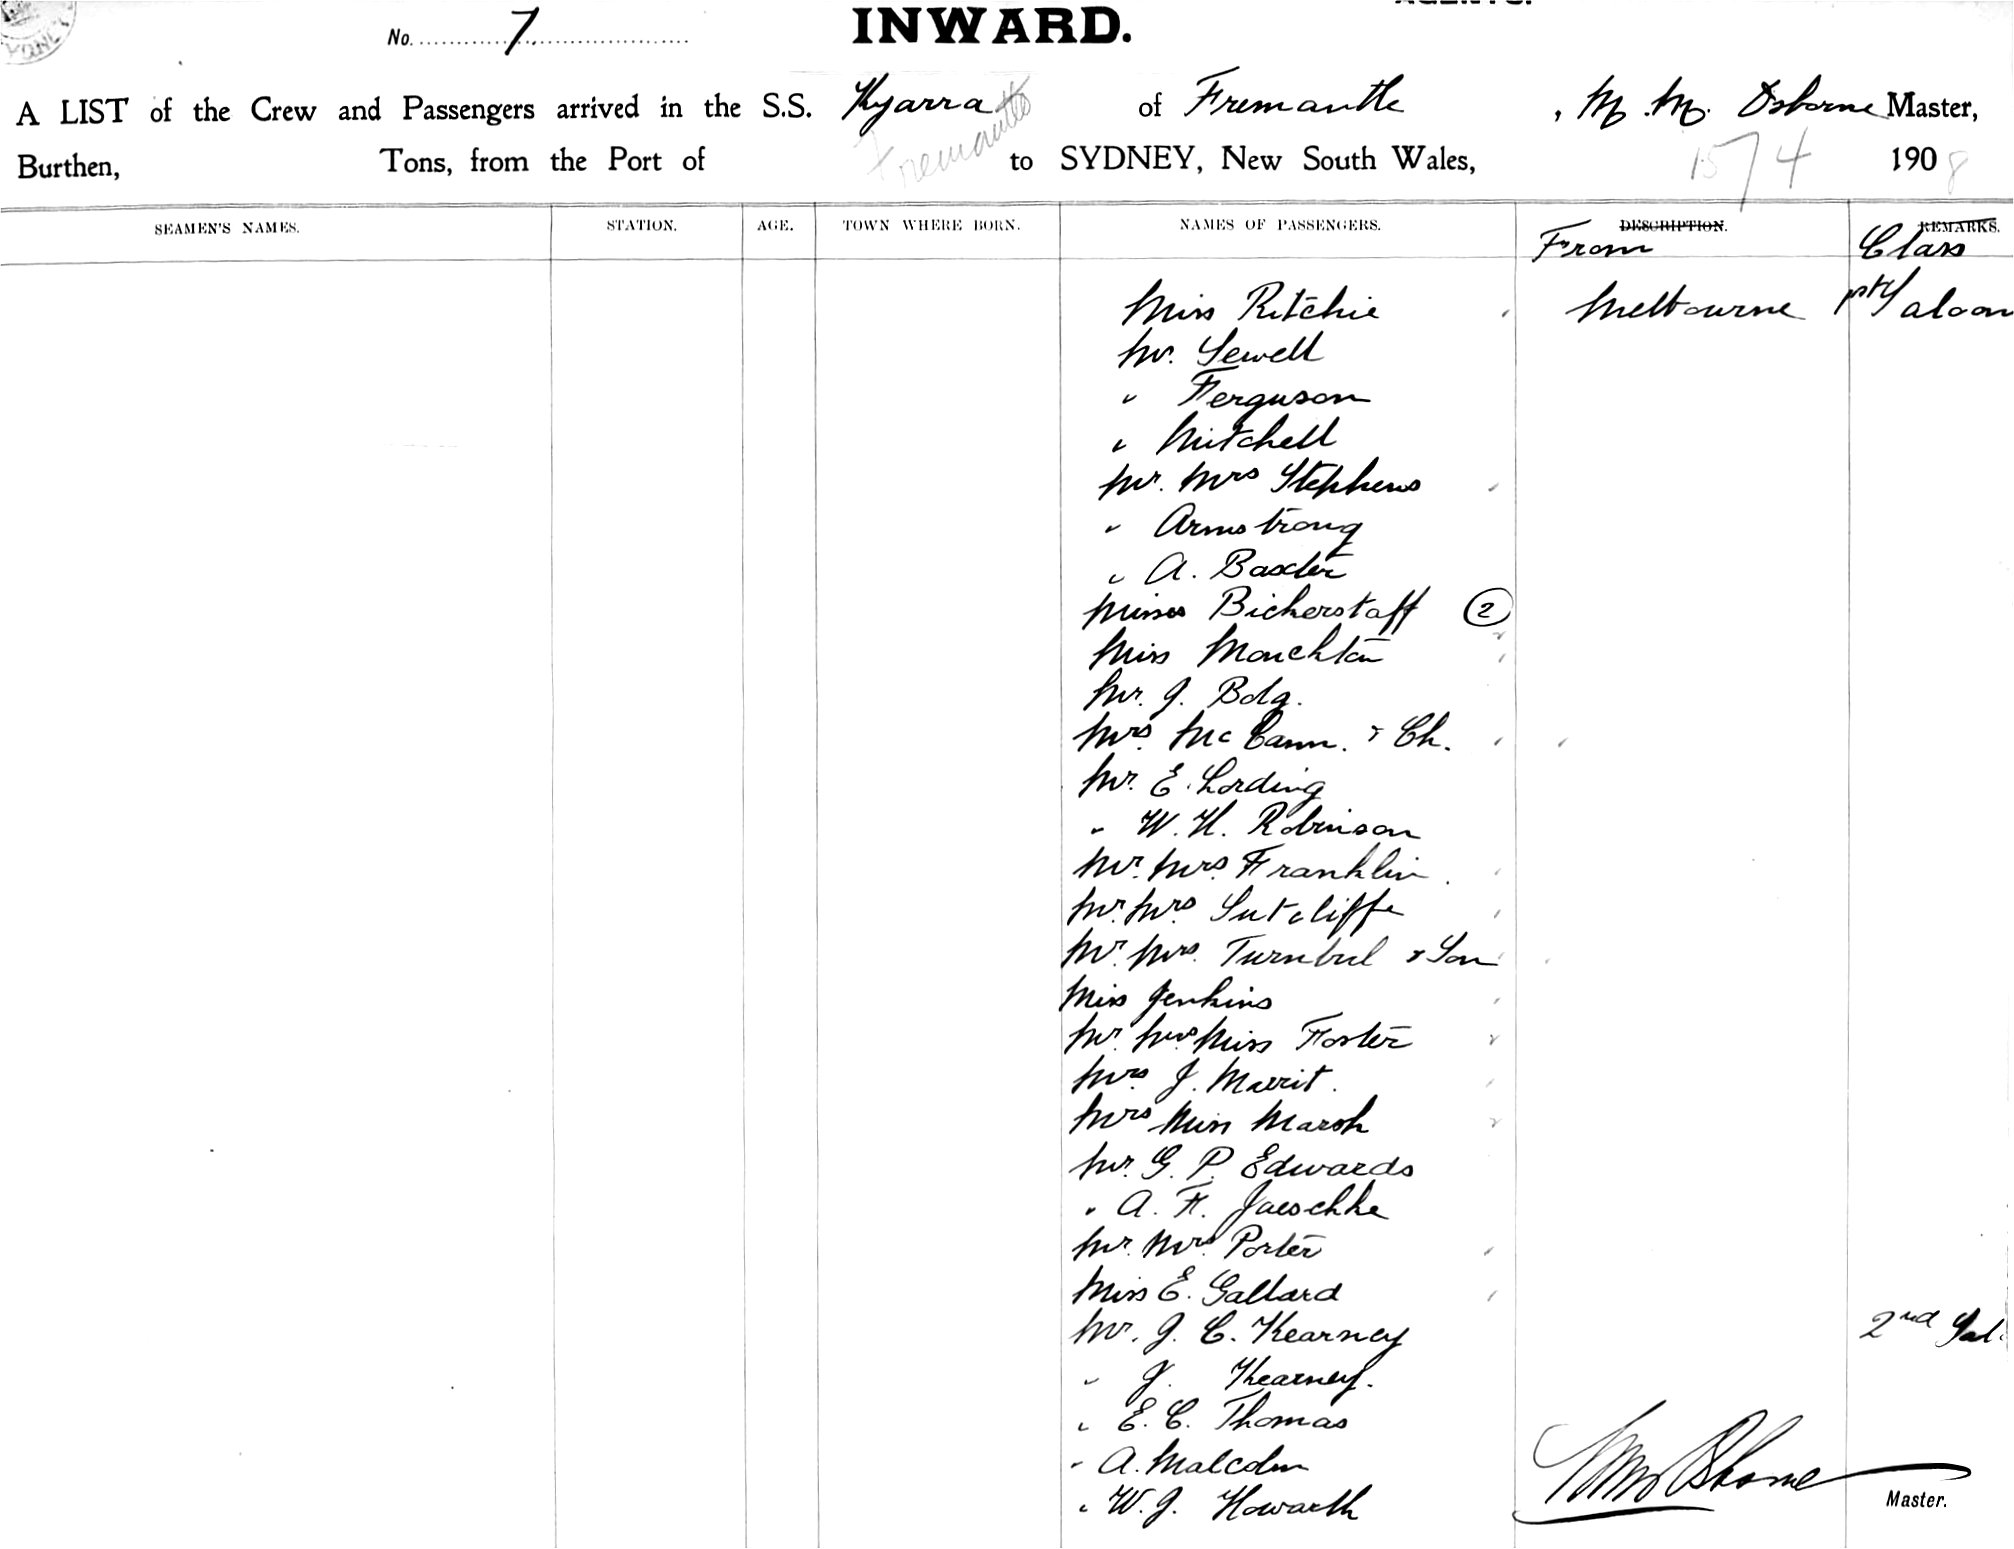 No. 7. INWARD.
A LIST of the Crew and Passengers arrived in the S.S. Kyarra of Fremantle, M. M. Osborne Master,
Burthen, Tons, from the Port of Fremantle to SYDNEY, New South Wales, 15/4 1908
SEAMEN'S NAMES. STATION. AGE. TOWN WHERE BORN. NAMES OF PASSENGERS. DESCRIPTION. REMARKS.
From Class
Miss Ritchie Melbourne 1st Saloon
Mr. Sewell
" Ferguson
" Mitchell
Mr. Mrs Stephens
" Armstrong
" A. Baxter
Misses Bickerstaff 2
Miss Monckton
Mr. J. Bdg.
Mrs. McCann. & Ch.
Mr. E. Lording
" W. H. Robinson
Mr. Mrs. Franklin.
Mr. Mrs Sutcliffe
Mr. Mrs. Turnbul & Son
Miss Jenkins
Mr. Mrs Miss Foster
Mrs J. Marrit.
Mrs Miss Marsh
Mr. G. P. Edwards
" A. F. Jaeschke
Mr. Mrs Porter
Miss E. Gallard
Mr. J. C. Kearney 2nd Sal.
" J. Kearney.
" E. C. Thomas
" A. Malcolm
" W. J. Howarth
MM Osborne
Master.